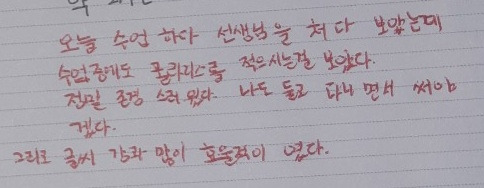 오늘 수업 하다 선생님을 쳐다 보았는데
수업중에도 플라리스를 적으시는걸 보았다.
정말 존경 스러웠다. 나도 들고 다니면서 써야
겠다.
그리고 글씨 강좌 많이 효율적이 였다.